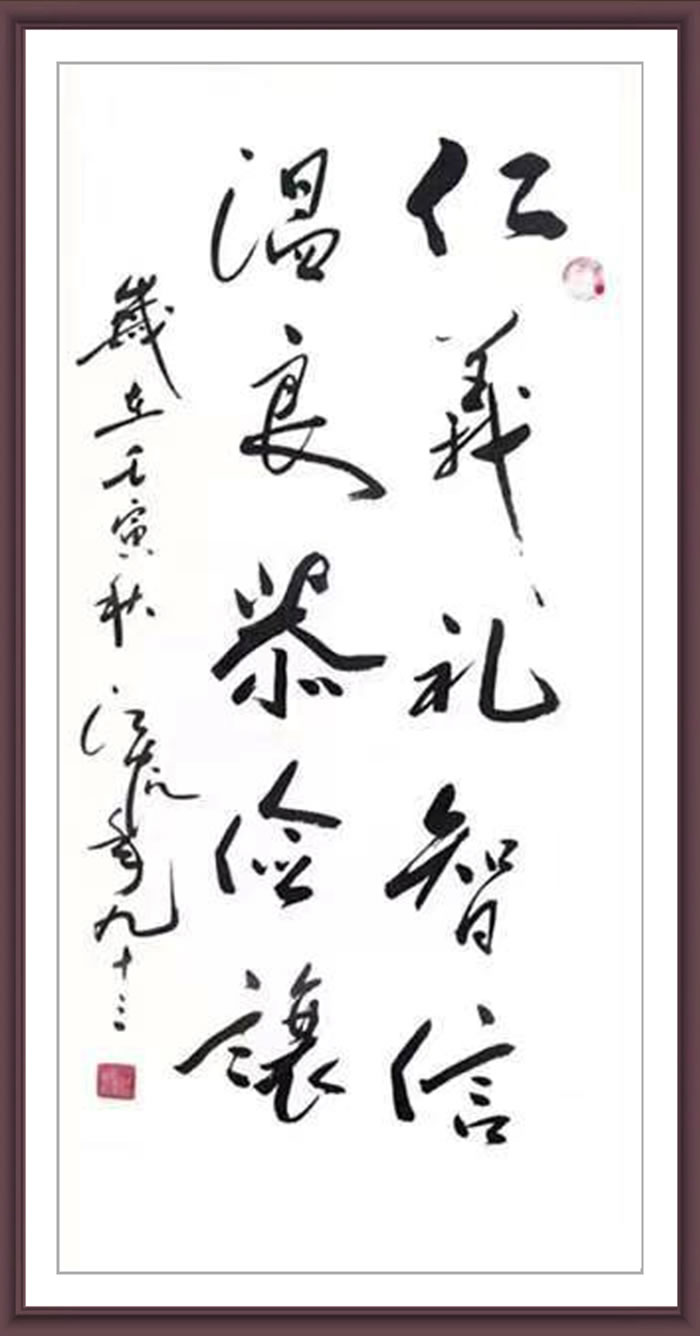 仁義礼智信
温良恭俭讓
歲在壬寅秋
年九十三